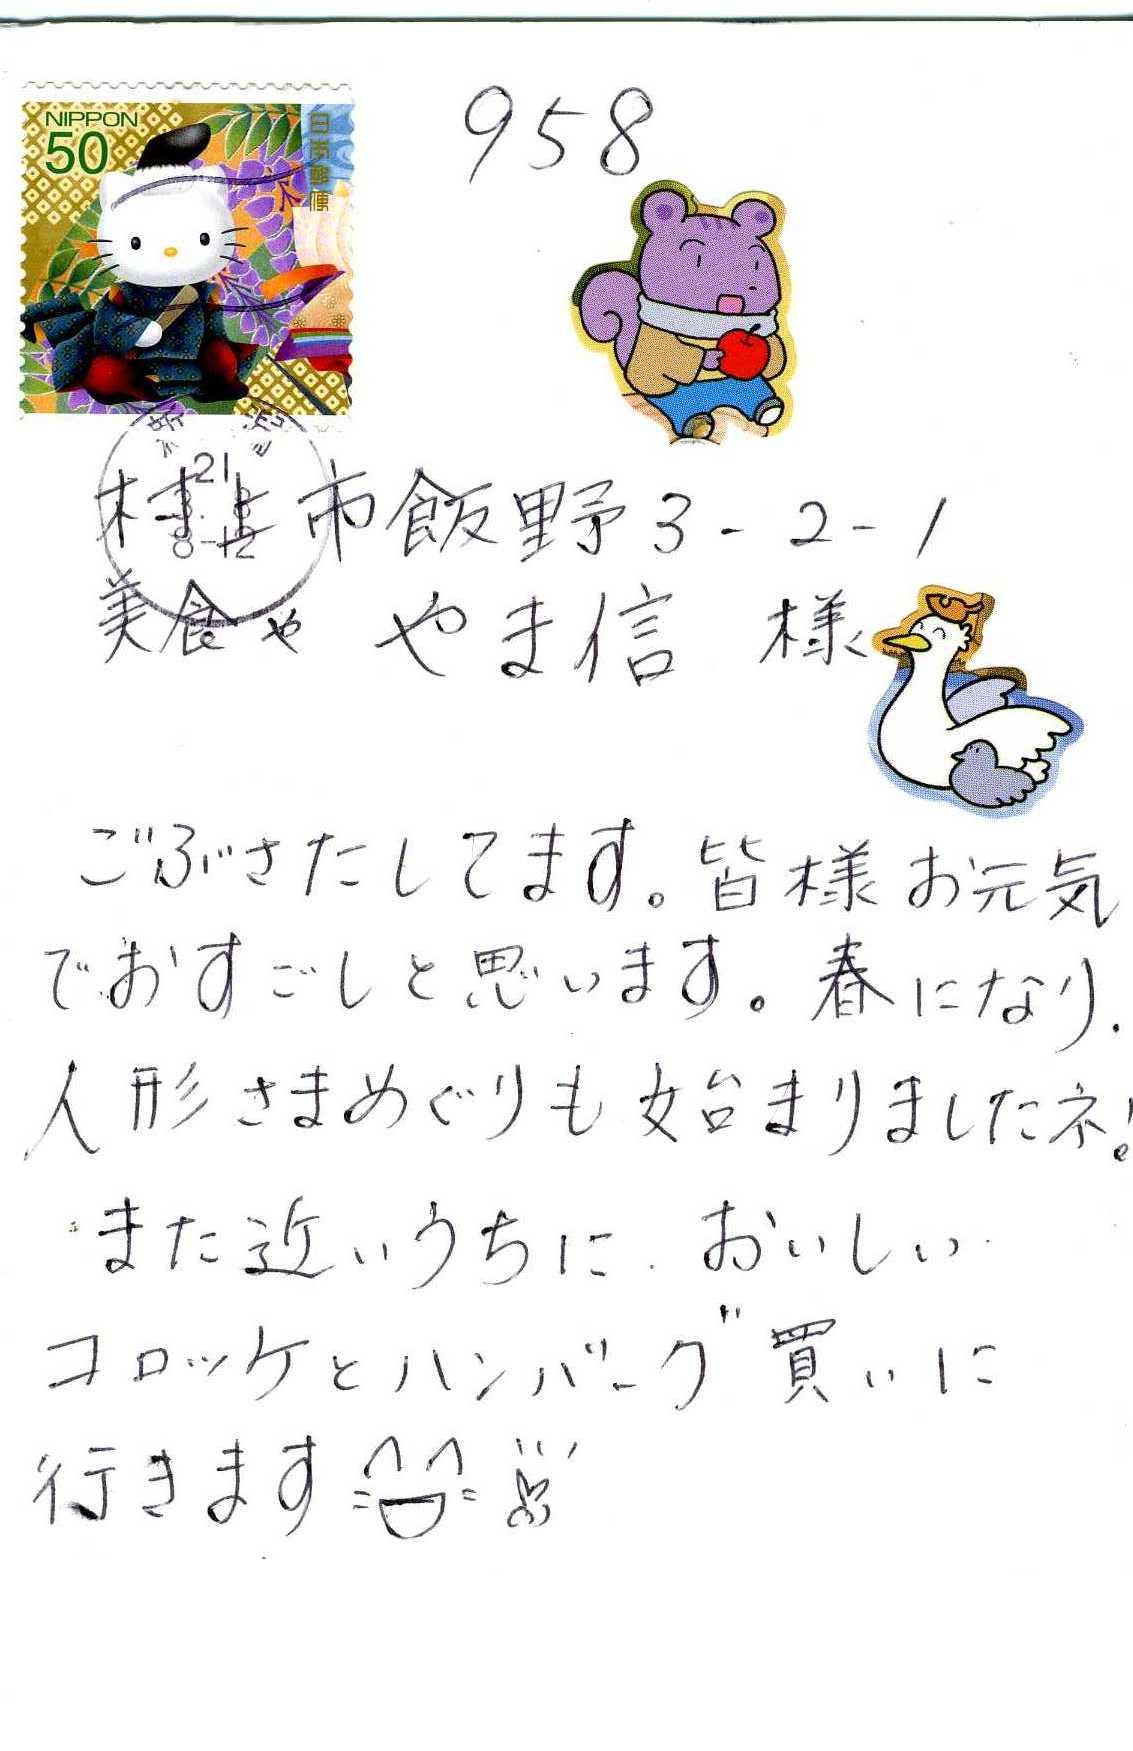 NIPPON
50
日本郵便
958
21
3. 8
8-12
村上市飯野3-2-1
美食や やま信 様
ごぶさたしてます。皆様お元気
でおすごしと思います。春になり.
人形さまめぐりも始まりましたネ!
また近いうちに.おいしい
コロッケとハンバーグ買いに
行きます